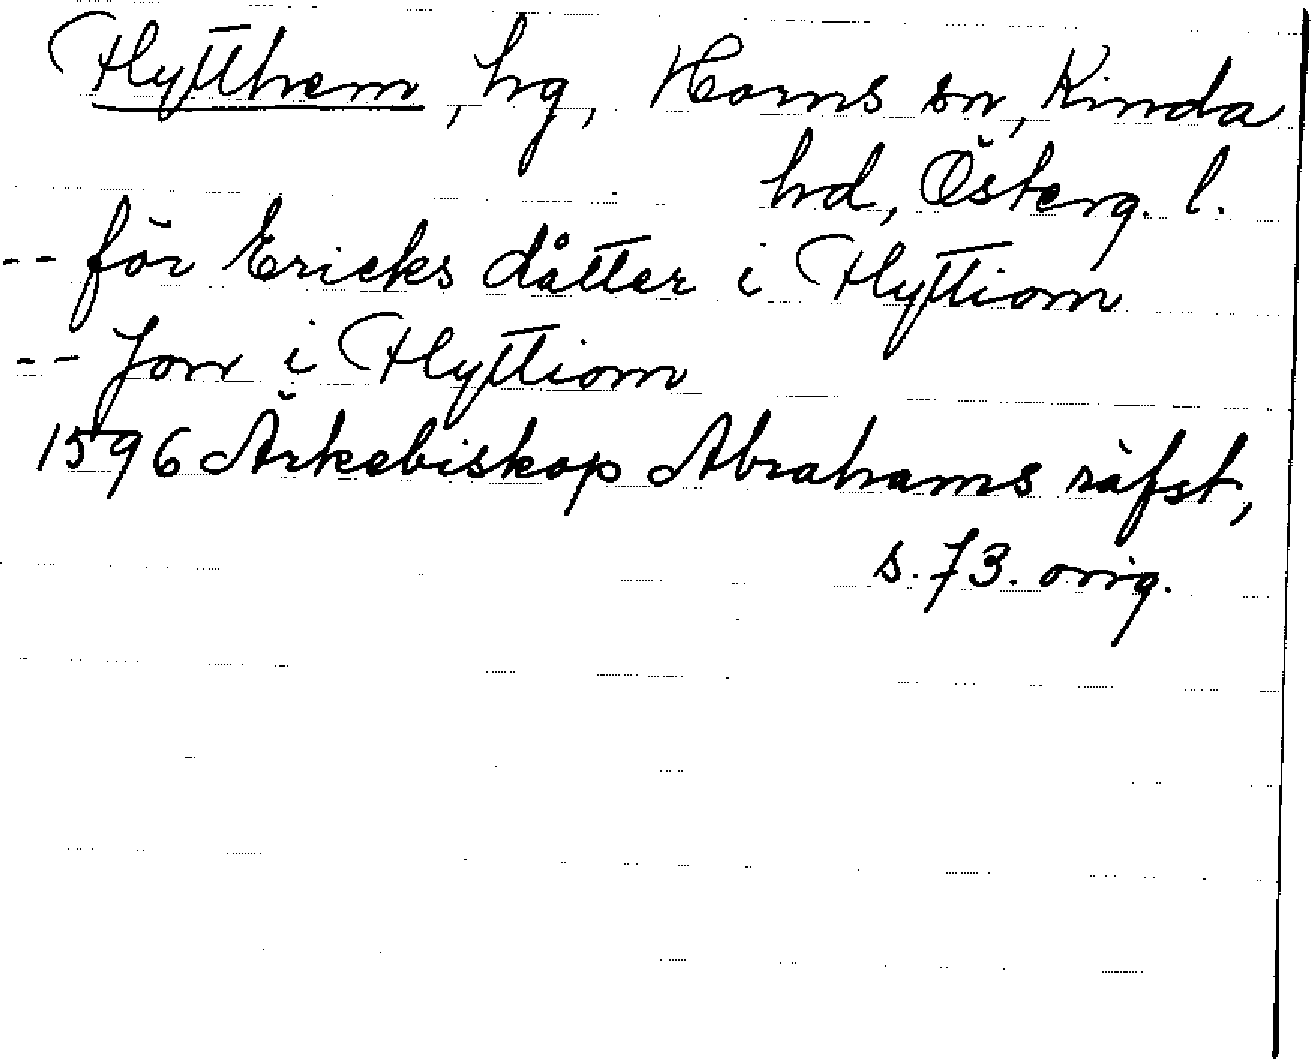 Hytthem, hg, Horns sn, Kinda
hd, Österg. l.
-- för Ericks dåtter i Hyttiom
-- Jon i Hyttiom
1596 Ärkebiskop Abrahams räfst,
s. 73. orig.